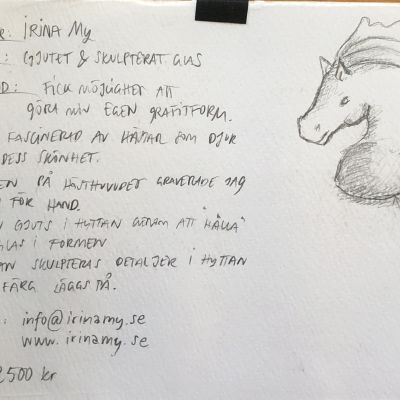 R: IRINA MY
: GJUTET & SKULPTERAT GLAS
D: FICK MÖJLIGHET ATT
GÖRA MIN EGEN GRAFITFORM.
FASCINERAD AV HÄSTAR SOM DJUR
DESS SKÖNHET.
EN PÅ HÄSTHUVUDET GRAVERADE JAG
FÖR HAND.
N GJUTS I HYTTAN GENOM ATT "HÄLLA"
GLAS I FORMEN
AN SKULPTERAS DETALJER I HYTTAN
FÄRG LÄGGS PÅ.
: info@irinamy.se
www.irinamy.se
2500 kr